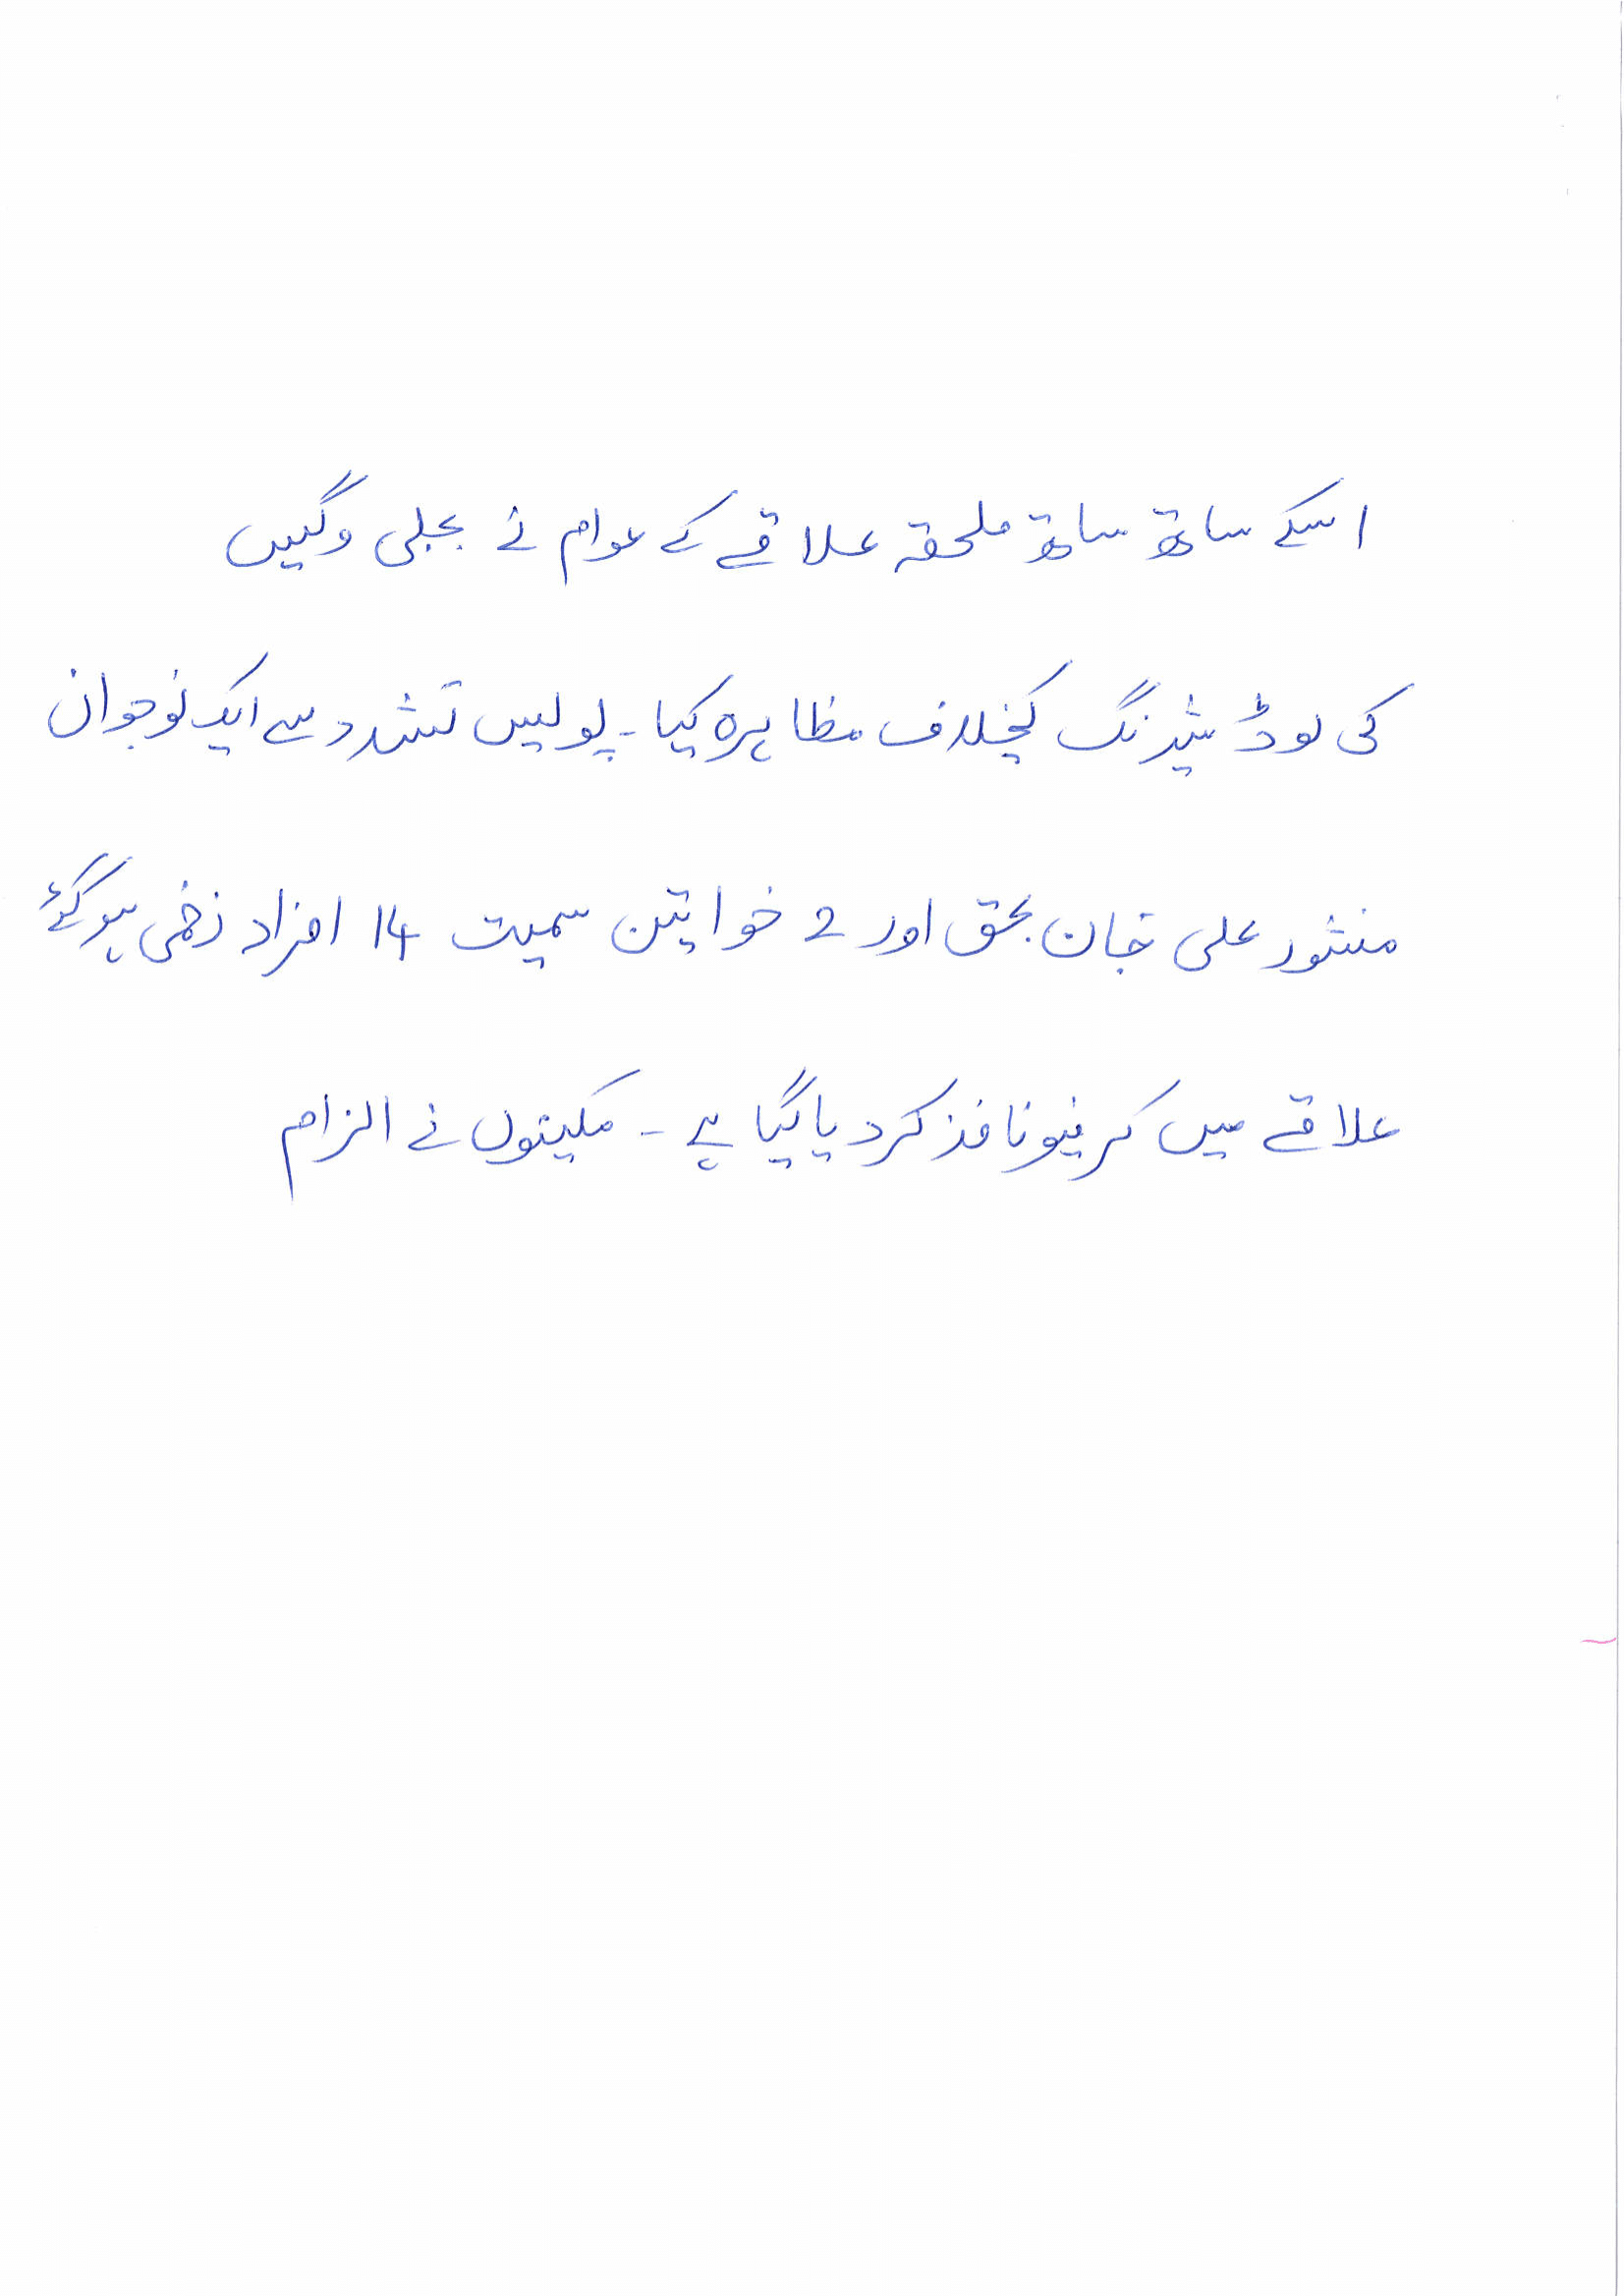 اسکے ساتھ ساتھ ملحقہ علاقے کے عوام نے بجلی وگیس
کی لوڈ شیڈنگ کیخلاف مظاہرہ کیا۔ پولیس تشدد سے ایک نوجوان
منشور علی جان بحق اور 2 خواتین سمیت 14 افراد زخمی ہوگئے
علاقے میں کرفیو نافذ کردیا گیا ہے ۔ مکینوں نے الزام